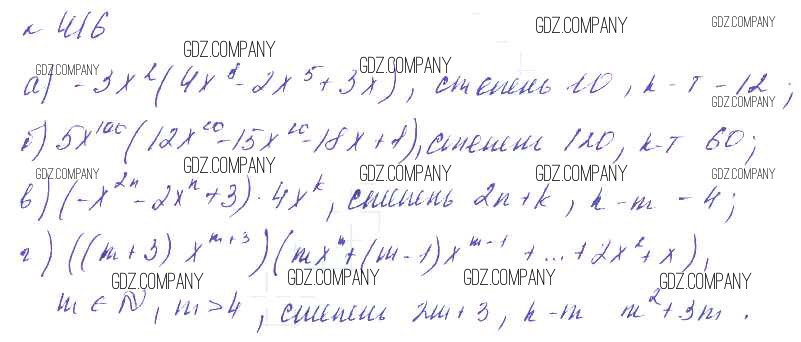 № 416
GDZ.COMPANY GDZ.COMPANY GDZ.COMPANY
GDZ.COMPANY GDZ.COMPANY
а) -3x²(4x⁸-2x⁵+3x), степень 10, к-т -12;
GDZ.COMPANY
б) 5x¹⁰⁰(12x²⁰-15x²⁰-18x+1), степень 120, к-т 60;
GDZ.COMPANY GDZ.COMPANY GDZ.COMPANY GDZ.COMPANY GDZ.COMPANY
в) (-x²ⁿ-2xⁿ+3)·4xᵏ, степень 2n+k, к-т -4;
г) ((m+3) xᵐ⁺³)(mxᵐ+(m-1)xᵐ⁻¹ +...+2x²+x),
GDZ.COMPANY GDZ.COMPANY GDZ.COMPANY GDZ.COMPANY
m ∈ N, m>4, степень 2m+3, к-т m²+3m.